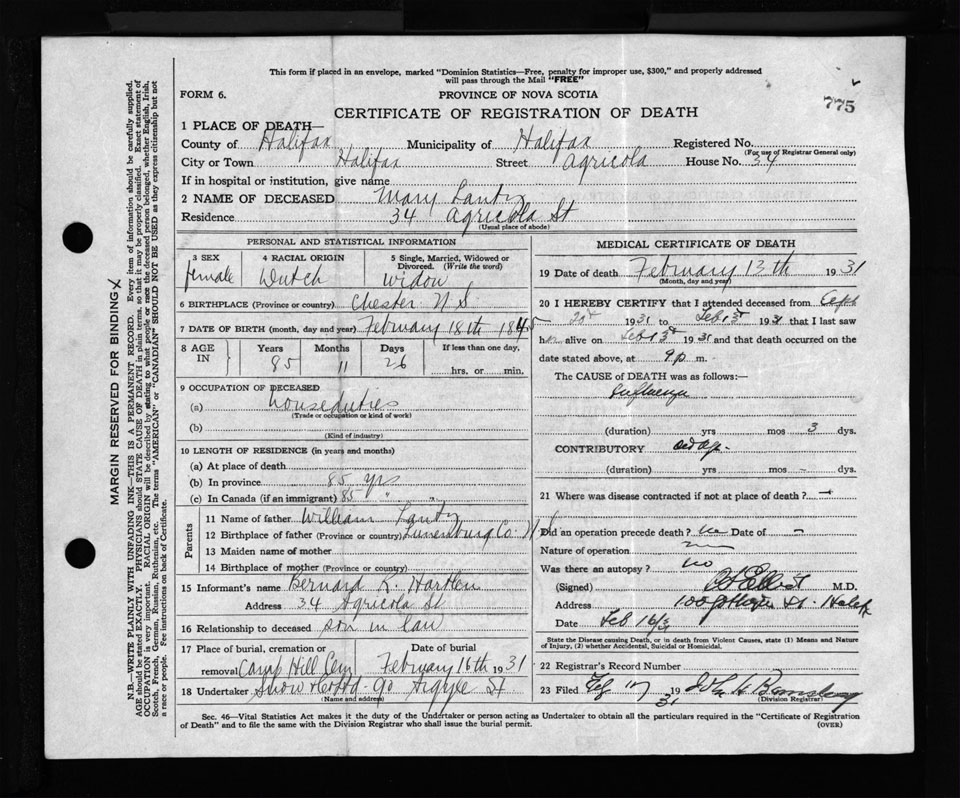 This form if placed in an envelope, marked "Dominion Statistics—Free, penalty for improper use, $300," and properly addressed
will pass through the Mail "FREE"
FORM 6.
PROVINCE OF NOVA SCOTIA
775
CERTIFICATE OF REGISTRATION OF DEATH
1 PLACE OF DEATH—
County of Halifax Municipality of Halifax Registered No.
(For use of Registrar General only)
City or Town Halifax Street Agricola House No. 34
If in hospital or institution, give name
2 NAME OF DECEASED Mary Lantz
Residence 34 Agricola St
(Usual place of abode)
PERSONAL AND STATISTICAL INFORMATION
3 SEX 4 RACIAL ORIGIN 5 Single, Married, Widowed or
Divorced. (Write the word)
female Dutch Widow
6 BIRTHPLACE (Province or country) Chester N S
7 DATE OF BIRTH (month, day and year) February 18th 1845
8 AGE IN Years Months Days If less than one day,
85 11 26 hrs. or min.
9 OCCUPATION OF DECEASED
(a) houseduties
(Trade or occupation or kind of work)
(b)
(Kind of industry)
10 LENGTH OF RESIDENCE (in years and months)
(a) At place of death
(b) In province 85 yrs
(c) In Canada (if an immigrant) 85 " "
Parents
11 Name of father William Lantz
12 Birthplace of father (Province or country) Lunenburg Co. N S
13 Maiden name of mother
14 Birthplace of mother (Province or country)
15 Informant's name Bernard K. Hartlen
Address 34 Agricola St
16 Relationship to deceased son in law
17 Place of burial, cremation or Date of burial
removal Camp Hill Cem February 16th 1931
18 Undertaker Snow & Co Ltd 90 Argyle St
(Name and address)
MEDICAL CERTIFICATE OF DEATH
19 Date of death February 13th 1931
(Month, day and year)
20 I HEREBY CERTIFY that I attended deceased from
1931 to Feb 13 1931 that I last saw
h alive on Feb 13 1931 and that death occurred on the
date stated above, at 9 p m.
The CAUSE of DEATH was as follows:—
Influenza
(duration) yrs mos 3 dys.
CONTRIBUTORY old age
(duration) yrs mos - dys.
21 Where was disease contracted if not at place of death? —
Did an operation precede death? no Date of -
Nature of operation
Was there an autopsy? no
(Signed) M.D.
Address St. Halifax
Date Feb 16/31
State the Disease causing Death, or in death from Violent Causes, state (1) Means and Nature
of Injury, (2) whether Accidental, Suicidal or Homicidal.
22 Registrar's Record Number
23 Filed Feb 17 1931
(Division Registrar)
Sec. 46—Vital Statistics Act makes it the duty of the Undertaker or person acting as Undertaker to obtain all the particulars required in the "Certificate of Registration
of Death" and to file the same with the Division Registrar who shall issue the burial permit.
(OVER)
MARGIN RESERVED FOR BINDING
N.B.—WRITE PLAINLY WITH UNFADING INK—THIS IS A PERMANENT RECORD. Every item of information should be carefully supplied.
AGE should be stated EXACTLY. PHYSICIANS should STATE CAUSE OF DEATH in plain terms, so that it may be properly classified. Exact statement of
OCCUPATION is very important. RACIAL ORIGIN will be described by stating to what people or race the deceased person belonged, whether English, Irish,
Scotch, French, German, Russian, Ruthenian, etc. The terms "AMERICAN" or "CANADIAN" SHOULD NOT BE USED as they express citizenship but not
a race or people. See instructions on back of Certificate.